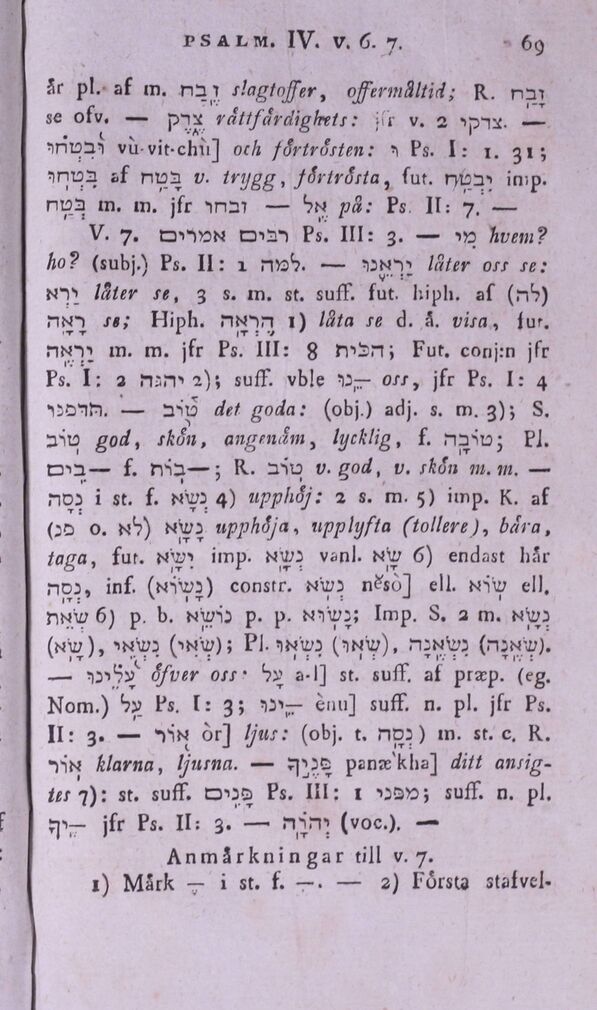 PSALM. IV. v. 6. 7. 69
år pl. af m. זֶבַח slagtoffer, offermåltid; R. זָבַח
se ofv. — צֶדֶק råttfärdighets: jfr v. 2 צדקי. —
וּבִטְחוּ vù-vit-chù] och förtrösten: ו Ps. I: 1. 31;
בִּטְחוּ af בָּטַח v. trygg, förtrösta, fut. יִבְטַח imp.
בְּטַח m. m. jfr זבחו — אֶל på: Ps. II: 7. —
V. 7. רבים אמרים Ps. III: 3. — מִי hvem?
ho? (subj.) Ps. II: 1 למה. — יַרְאֵנוּ låter oss se:
יַרְא låter se, 3 s. m. st. suff. fut. hiph. af (לה)
רָאָה se; Hiph. הֶרְאָה 1) låta se d. å. visa, fut.
יַרְאֶה m. m. jfr Ps. III: 8 הכית; Fut. conj:n jfr
Ps. I: 2 יהגה 2); suff. vble ־ֵנוּ oss, jfr Ps. I: 4
תדפנו. — טוֹב det goda: (obj.) adj. s. m. 3); S.
טוֹב god, skön, angenäm, lycklig, f. טוֹבָה; Pl.
־בִים f. ־בוֹת; R. טוֹב v. god, v. skön m. m. —
נְסָה i st. f. נְשָׂא 4) upphöj: 2 s. m. 5) imp. K. af
(פנ o. לא) נָשָׂא upphöja, upplyfta (tollere), båra,
taga, fut. יִשָּׂא imp. נְשָׂא vanl. שָׂא 6) endast här
נְסָה, inf. (נָשׂוֹא) constr. נְשֹׂא nĕsò] ell. שׂוֹא ell.
שְׂאֵת 6) p. b. נוֹשֵׂא p. p. נָשׂוּא; Imp. S. 2 m. נְשָׂא
(שָׂא), נִשְׂאִי (שְׂאִי); Pl. נִשְׂאוּ (שְׂאוּ), נְשֶׂאנָה (שֶׂאנָה).
— עָלֵינוּ öfver oss: עַל a-l] st. suff. af præp. (eg.
Nom.) עַל Ps. I: 3; ־ֵינוּ ènu] suff. n. pl. jfr Ps.
II: 3. — אוֹר òr] ljus: (obj. t. נְסָה) m. st. c. R.
אוֹר klarna, ljusna. — פָּנֶיךָ panæ'kha] ditt ansig-
tes 7): st. suff. פָּנִים Ps. III: 1 מפני; suff. n. pl.
־ֶיךָ jfr Ps. II: 3. — יְהוָה (voc.). —
Anmärkningar till v. 7.
1) Märk ־ַ i st. f. ־ִ. — 2) Första stafvel-